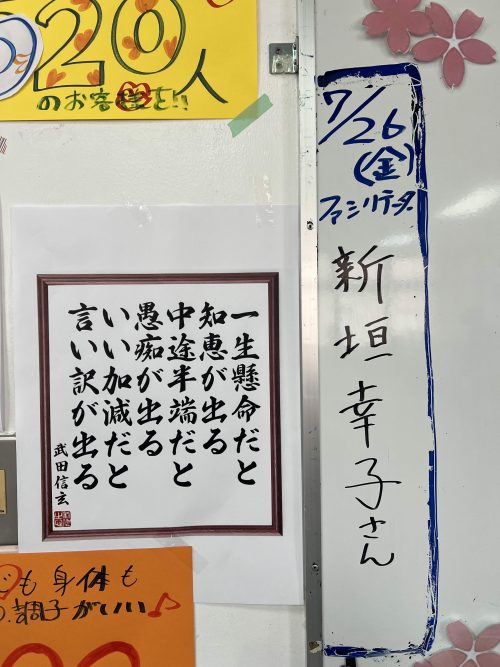 520人
のお客様を!!
7/26
(金)
ファミリテーター
新垣幸子さん
一生懸命だと
知恵が出る
中途半端だと
愚痴が出る
いい加減だと
言い訳が出る
武田信玄
も身体も
調子がいい♪